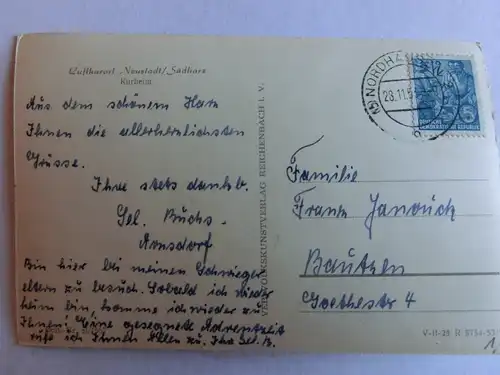 Luftkurort Neustadt/Südharz
Kurheim
Aus dem schönem Harz
Ihnen die allerherzlichsten
Grüsse.
Ihre stets dankb.
Gel. Buchs.
Arnsdorf
Bin hier bei meinen Schwieger
eltern zu besuch. Sobald ich wieder
heim bin, komme ich wieder zu
Ihnen! Eine gesegnete Adventzeit
rufe ich Ihnen Allen zu. Ihr
VEB VOLKSKUNSTVERLAG REICHENBACH I. V.
NORDHAUSEN
28.11.5
DEUTSCHE
DEMOKRATISCHE REPUBLIK
Familie
Frank Janouck
Bautzen
Goethestr 4
V-11-28